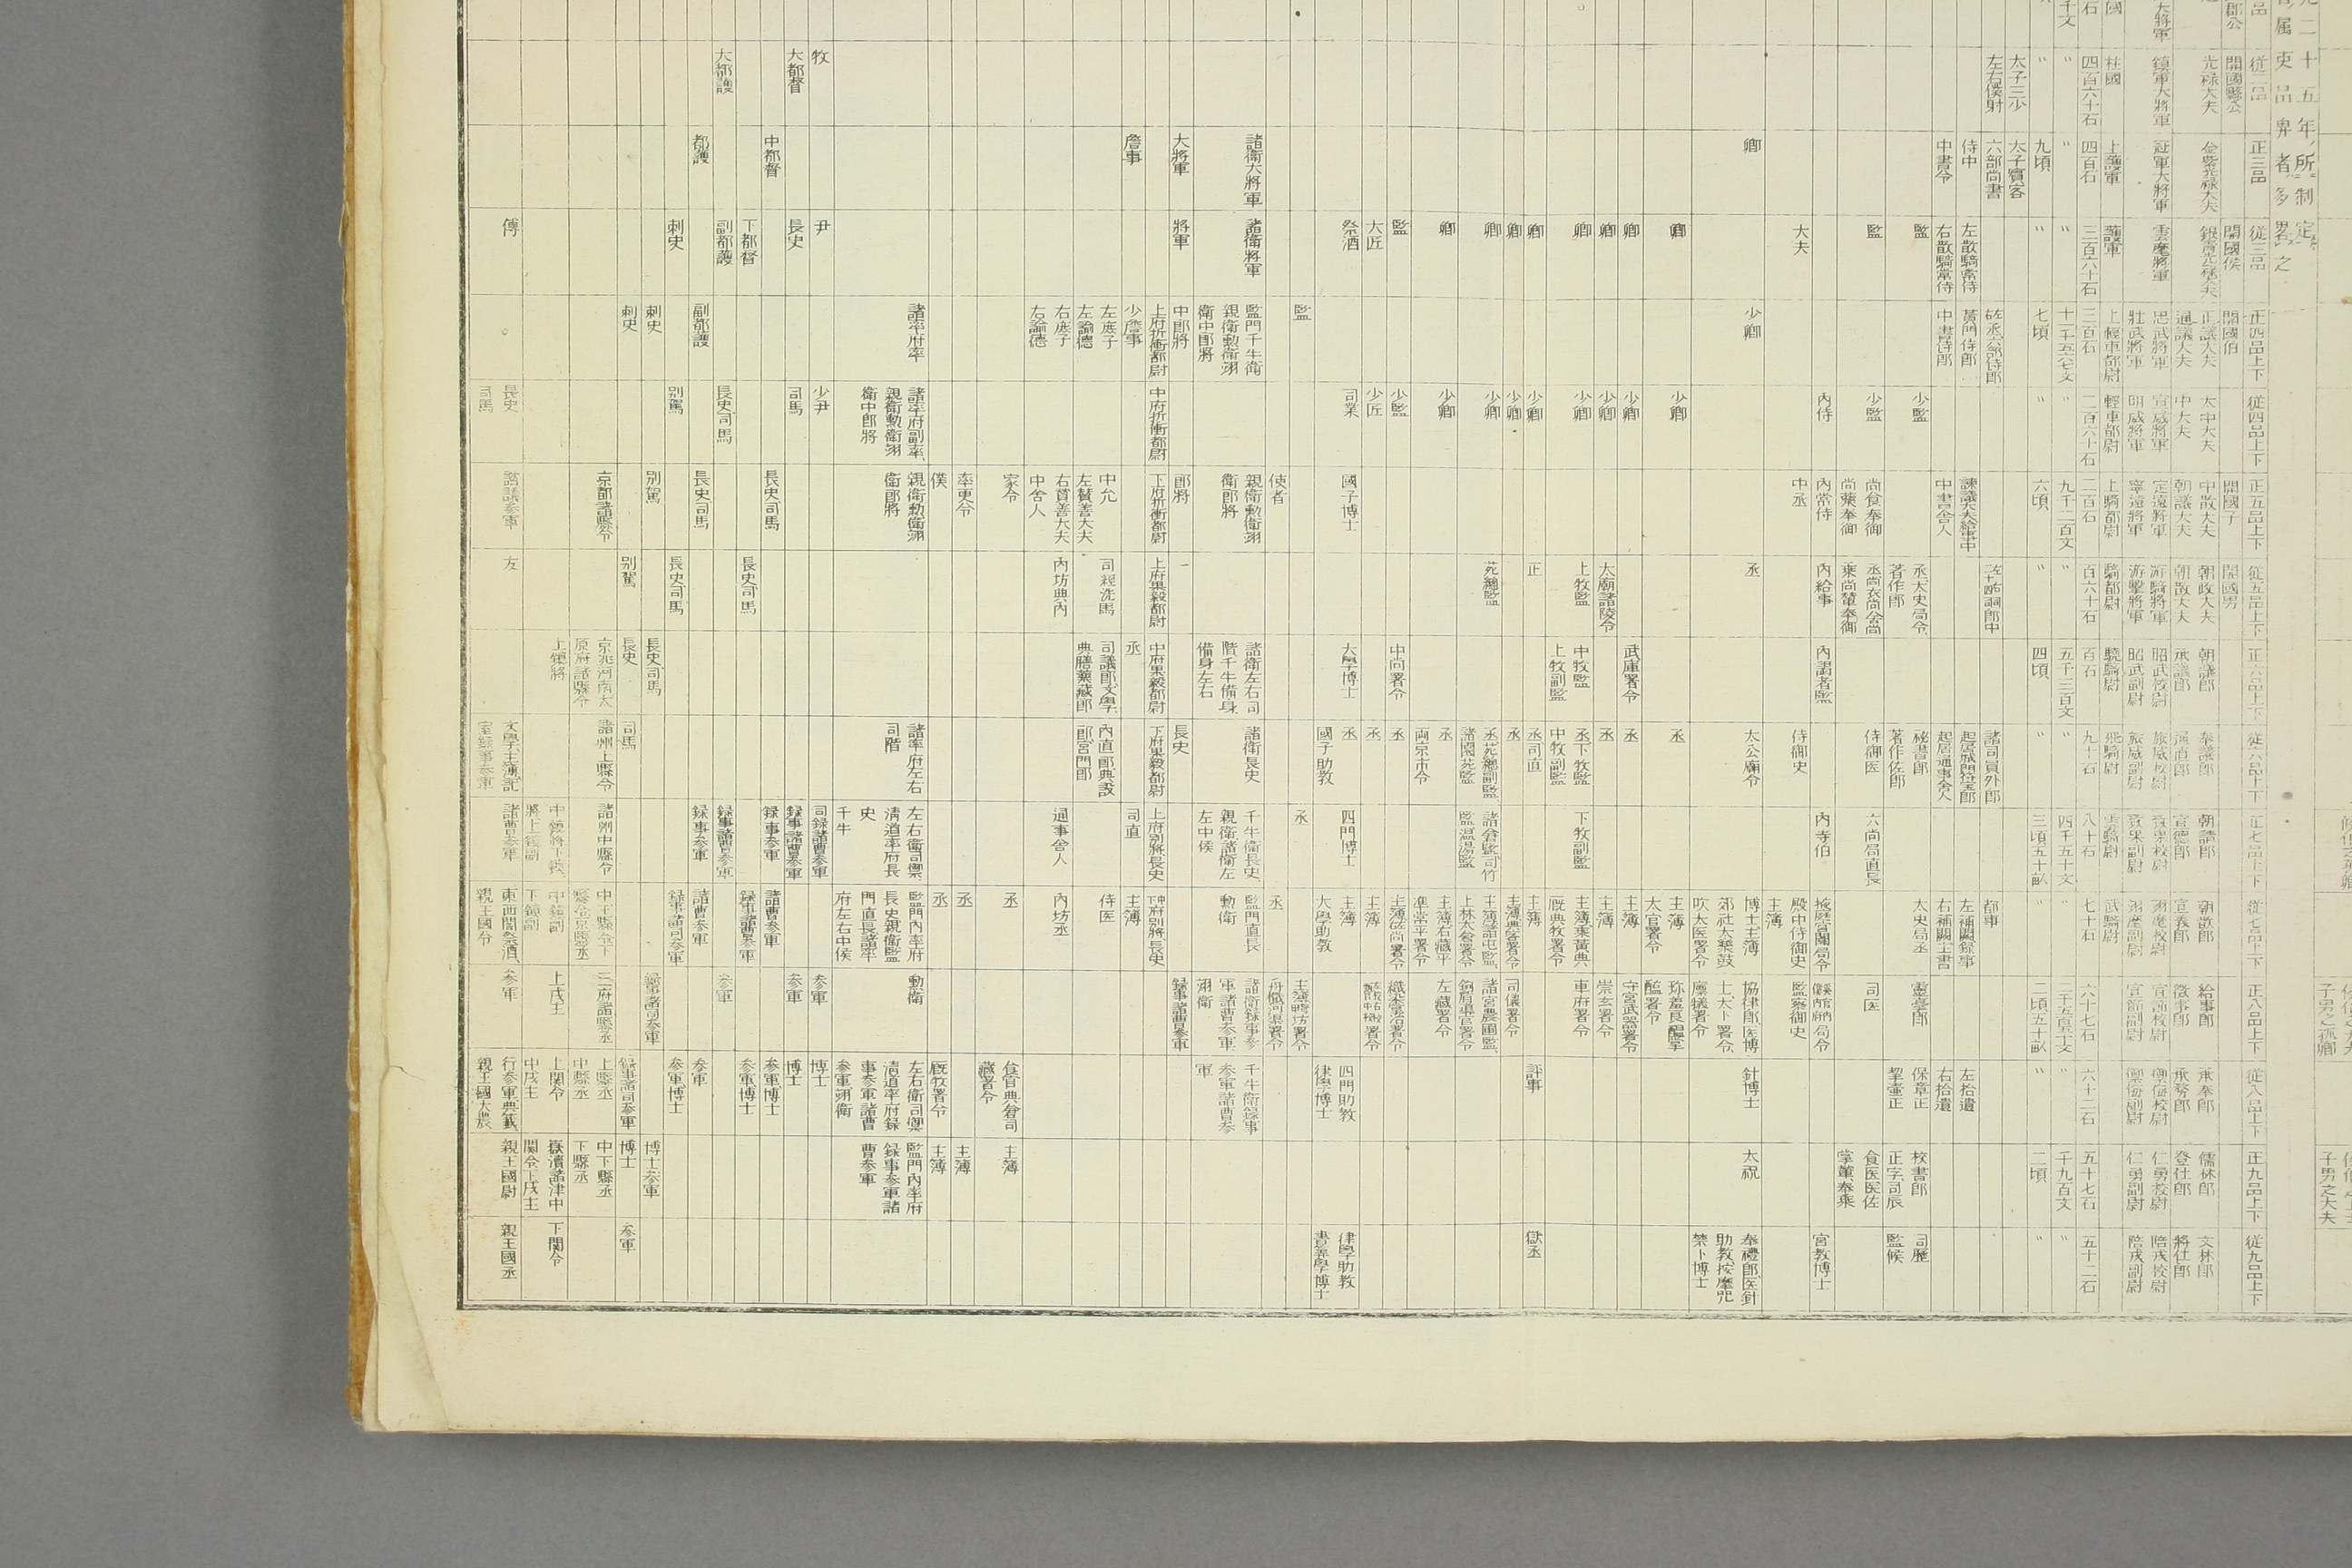 二十五年所制定
属吏品卑者多畧之
従二品
開國縣公
光禄大夫
鎮軍大將軍
柱國
四百六十石
〃
〃
太子三少
左右僕射
牧
大都督
大都護
正三品
金紫光禄大夫
冠軍大將軍
上護軍
四百石
〃
九頃
太子賓客
六部尚書
侍中
中書令
卿
諸衛大將軍
大將軍
詹事
中都督
都護
従三品
開國侯
銀青光禄大夫
雲麾將軍
護軍
三百六十石
〃
〃
左散騎常侍
右散騎常侍
監
監
大夫
卿
卿
卿
卿
卿
卿
卿
卿
監
大匠
祭酒
諸衛將軍
將軍
尹
長史
下都督
副都護
刺史
傅
正四品上下
開國伯
正議大夫
通議大夫
忠武將軍
壮武將軍
上輕車都尉
三百石
七頃
黃門侍郎
中書侍郎
少卿
監
監門千牛衛
親衛勲衛翊
衛中郎將
中郎將
上府折衝都尉
少詹事
左庶子
左諭德
右庶子
右諭德
諸率府率
副都護
刺史
刺史
従四品上下
太中大夫
中大夫
宣威將軍
明威將軍
輕車都尉
二百六十石
〃
〃
少監
少監
內侍
少卿
少卿
少卿
少卿
少卿
少卿
少卿
少卿
少監
少匠
司業
中府折衝都尉
諸率府副率
親衛勲衛翊
衛中郎將
少尹
司馬
長史司馬
別駕
長史
司馬
正五品上下
開國子
中散大夫
朝議大夫
定遠將軍
寧遠將軍
上騎都尉
二百石
九千二百文
六頃
諫議大夫給事中
中書舍人
尚食奉御
尚藥奉御
內常侍
中丞
國子博士
使者
親衛勲衛翊
衛郎將
郎將
下府折衝都尉
中允
左賛善大夫
右賛善大夫
中舍人
家令
率更令
僕
親衛勲衛翊
衛郎將
長史司馬
長史司馬
別駕
京都諸縣令
諮議参軍
従五品上下
開國男
朝散大夫
游騎將軍
游擊將軍
騎都尉
百六十石
〃
〃
丞太史局令
著作郎
丞尚衣尚舍尚
乘尚輦奉御
內給事
丞
太廟諸陵令
上牧監
正
苑總監
上府果毅都尉
司經洗馬
內坊典內
長史司馬
長史司馬
別駕
友
正六品上下
朝議郎
承議郎
昭武校尉
昭武副尉
驍騎尉
百石
五千三百文
四頃
內謁者監
武庫署令
中牧監
上牧副監
中尚署令
大學博士
諸衛左右司
階千牛備身
備身左右
中府果毅都尉
丞
司議郎文學
典膳藥藏郎
長史司馬
長史
京兆河南太
原府諸縣令
上鎮將
従六品上下
奉議郎
通直郎
振威校尉
振威副尉
飛騎尉
九十石
〃
〃
諸司員外郎
起居通事舍人
秘書郎
著作佐郎
侍御医
侍御史
太公廟令
丞
丞
丞
丞下牧監
中牧副監
丞司直
丞
丞苑總副監
諸園苑監
丞
両京市令
丞
丞
丞
國子助教
諸衛長史
長史
下府果毅都尉
內直郎典設
郎宮門郎
諸率府左右
司階
司馬
諸州上縣令
文學主簿記
室録事参軍
正七品上下
朝請郎
宣德郎
致果校尉
致果副尉
雲騎尉
八十石
四千五十文
三頃五十畝
六尚局直長
內寺伯
下牧副監
諸倉監司竹
監温湯監
四門博士
丞
千牛衛長史
親衛諸衛左
左中侯
上府別將長史
司直
通事舍人
左右衛司禦
清道率府長
史
千牛
司録諸曹参軍
録事諸曹参軍
録事参軍
録事諸曹参軍
録事参軍
諸州中縣令
中鎮將下鎮
將上鎮副
諸曹参軍
従七品上下
朝散郎
宣義郎
翊麾校尉
翊麾副尉
武騎尉
七十石
〃
〃
都事
左補闕録事
右補闕主書
太史局丞
掖庭宮闈局令
殿中侍御史
主簿
博士主簿
郊社太樂鼓
吹太医署令
主簿
太官署令
主簿
主簿
主簿乗黃典
厩典牧署令
主簿
主簿典客署令
主簿諸屯監
上林太倉署令
主簿右藏平
準常平署令
主簿左尚署令
主簿
主簿
大學助教
丞
監門直長
勲衛
中府別將長史
主簿
侍医
內坊丞
丞
丞
丞
監門內率府
長史親衛監
門直長諸率
府左右中侯
諸曹参軍
録事諸曹参軍
諸曹参軍
録事諸司参軍
中下縣令下
縣令京縣丞
中鎮副
下鎮副
東西閣祭酒
親王國令
正八品上下
給事郎
徵事郎
宣節校尉
宣節副尉
六十七石
二千五百五十文
二頃五十畝
靈臺郎
司医
監察御史
協律郎医博
士太卜署令
廪犧署令
珍羞良醞掌
醢署令
守宮武器署令
崇玄署令
車府署令
司儀署令
諸宮農圃監
鉤盾導官署令
左藏署令
織染署令
諸衛録事参
軍諸曹参軍
翊衛
録事諸曹参軍
勲衛
参軍
参軍
参軍
録事諸司参軍
三府諸縣丞
上戌主
参軍
従八品上下
承奉郎
承務郎
禦侮校尉
禦侮副尉
六十二石
〃
〃
左拾遺
右拾遺
保章正
挈壷正
針博士
評事
四門助教
律學博士
千牛衛録事
参軍諸曹参
軍
食官典倉司
藏署令
厩牧署令
左右衛司禦
清道率府録
事参軍諸曹
参軍翊衛
博士
博士
参軍博士
参軍博士
参軍
参軍博士
録事諸司参軍
上縣丞
中縣丞
上関令
中戌主
行参軍典籤
親王國大農
正九品上下
儒林郎
登仕郎
仁勇校尉
仁勇副尉
五十七石
千九百文
二頃
校書郎
正字司辰
食医医佐
掌輦奉乘
太祝
主簿
主簿
主簿
監門內率府
録事参軍諸
曹参軍
博士参軍
博士
中下縣丞
下縣丞
嶽瀆諸津中
関令下戌主
親王國尉
従九品上下
文林郎
將仕郎
陪戎校尉
陪戎副尉
五十二石
〃
〃
司歷
監候
宮教博士
奉禮郎医針
助教按摩咒
禁卜博士
獄丞
律學助教
書算學博士
参軍
下関令
親王國丞
子男之大夫